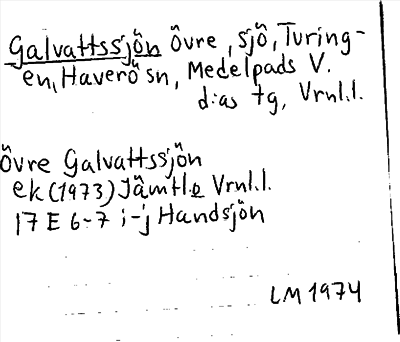 Galvattssjön Övre, sjö, Turing-
en, Haverö sn, Medelpads V.
d:as tg, Vrnl.l.
Övre Galvattssjön
ek (1973) Jämtle Vrnl.l.
17 E 6-7 i-j Handsjön
LM 1974